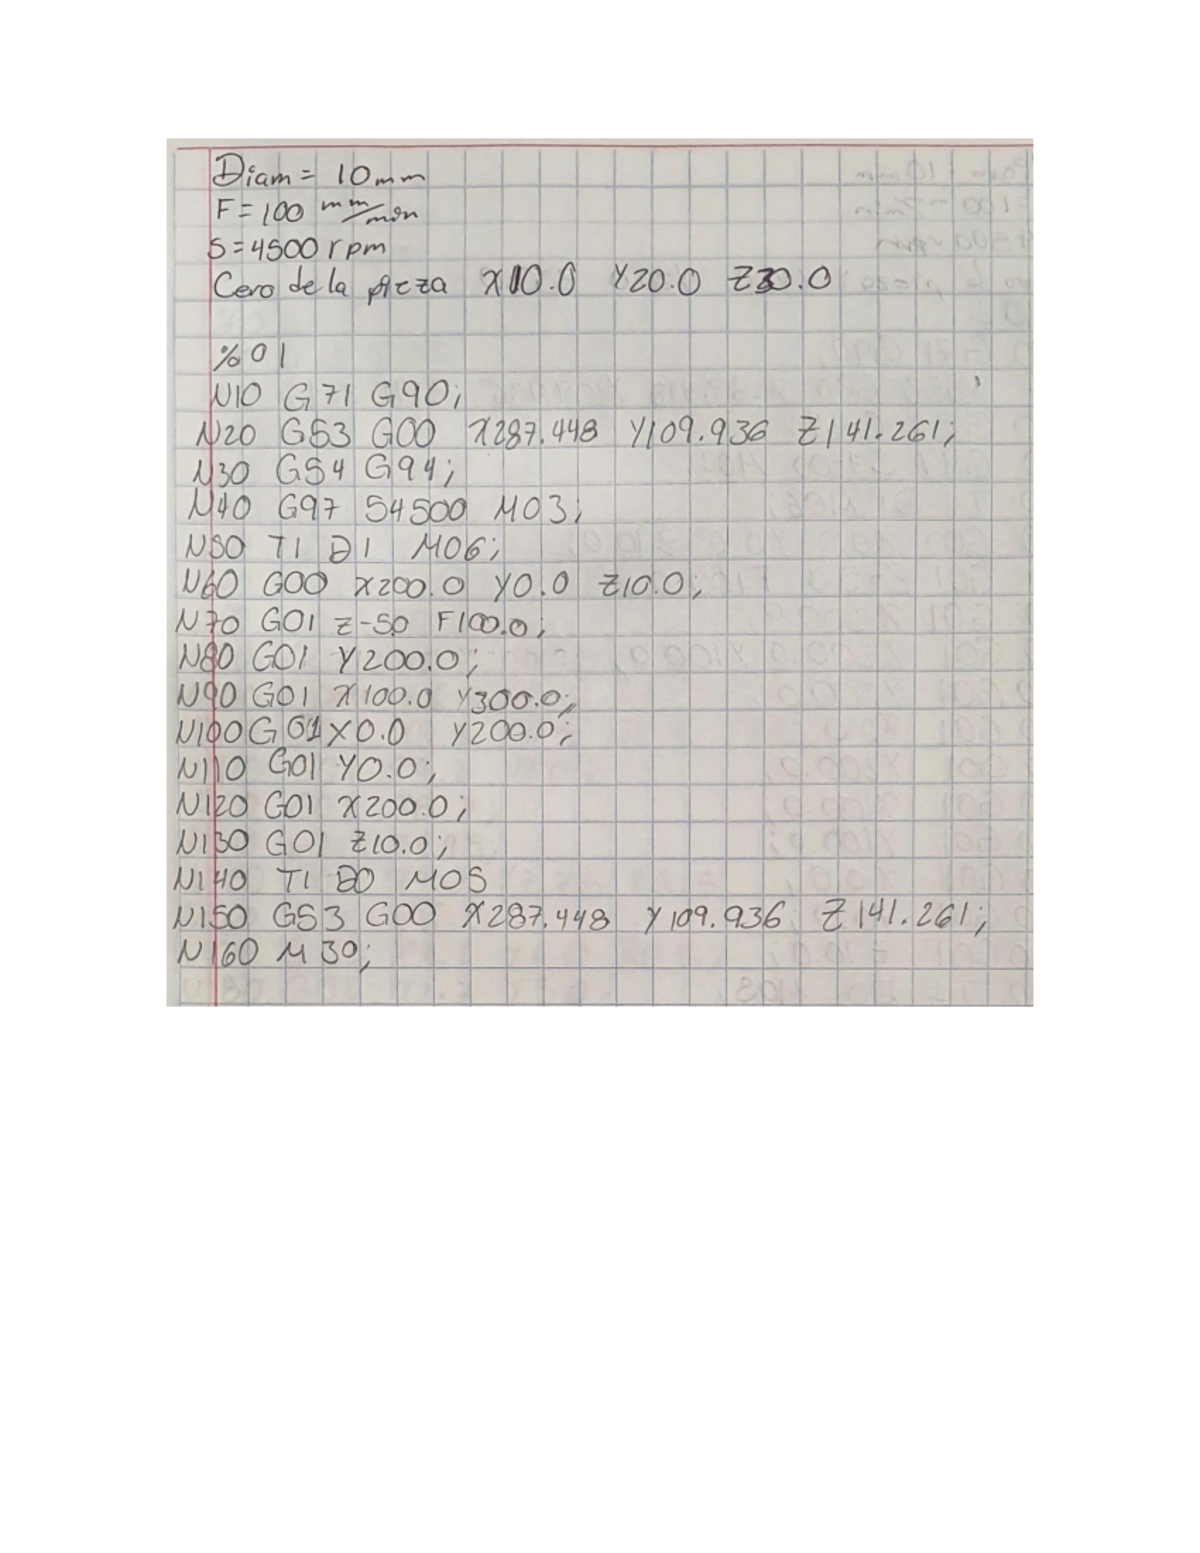 Diam = 10mm
F = 100 mm/min
S = 4500 rpm
Cero de la pieza X10.0 Y20.0 Z30.0
%01
N10 G71 G90;
N20 G53 G00 X287.448 Y109.936 Z141.261;
N30 G54 G94;
N40 G97 S4500 M03;
N50 T1 D1 M06;
N60 G00 X200.0 Y0.0 Z10.0;
N70 G01 Z-50 F100.0;
N80 G01 Y200.0;
N90 G01 X100.0 Y300.0;
N100 G01 X0.0 Y200.0;
N110 G01 Y0.0;
N120 G01 X200.0;
N130 G01 Z10.0;
N140 T1 D0 M05
N150 G53 G00 X287.448 Y109.936 Z141.261;
N160 M30;